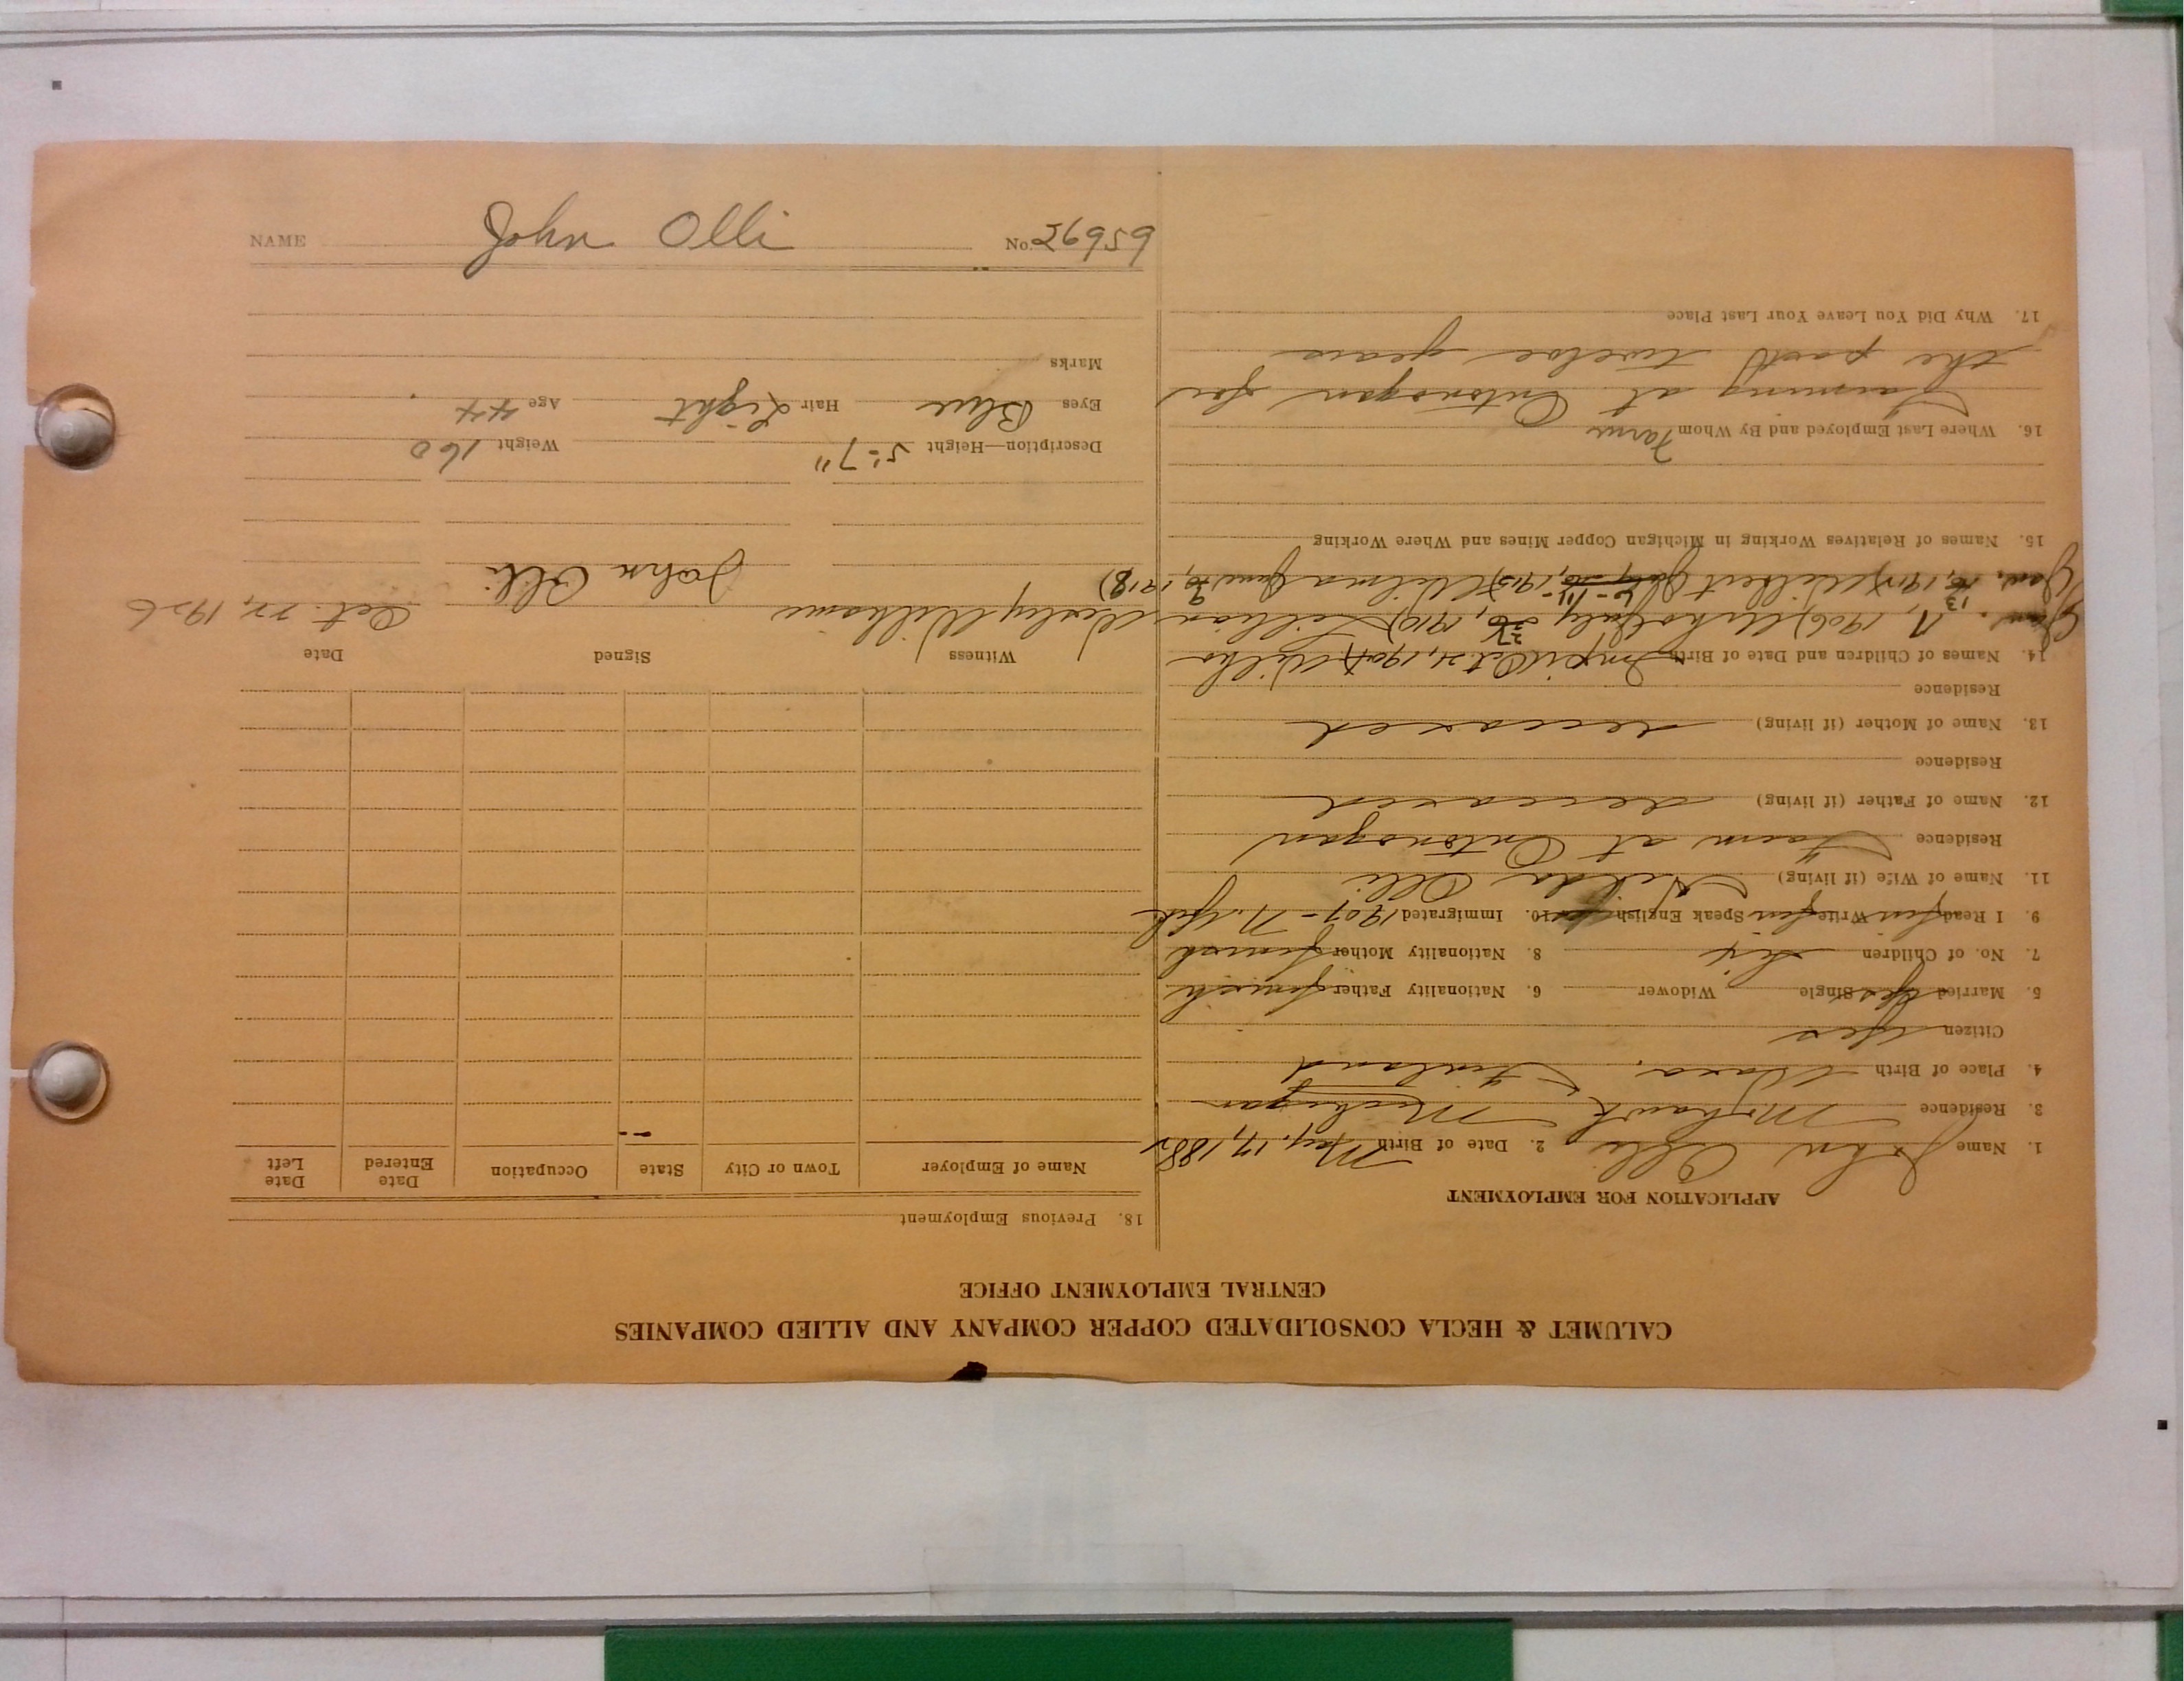 CALUMET & HECLA CONSOLIDATED COPPER COMPANY AND ALLIED COMPANIES
CENTRAL EMPLOYMENT OFFICE
APPLICATION FOR EMPLOYMENT
1. Name John Olli 2. Date of Birth May, 17, 1882
3. Residence Mohawk Michigan
4. Place of Birth Waxa, Finland
Citizen Yes
5. Married Yes Single Widower 6. Nationality Father Finnish
7. No. of Children Six 8. Nationality Mother Finnish
9. I Read Fin Write Fin Speak English 10. Immigrated 1907 -
11. Name of Wife (if living) Hilda Olli
Residence Farm at Ontonogan
12. Name of Father (if living) deceased
Residence
13. Name of Mother (if living) deceased
Residence
14. Names of Children and Date of Birth Impi (Oct. 21, 1904) Wilho
1906) Urho (July 26, 1910) Lillian
Wilbert (July 1915) Wilma (June 1918)
15. Names of Relatives Working in Michigan Copper Mines and Where Working
16. Where Last Employed and By Whom Farm
Farming at Ontonogan for
the past twelve years
17. Why Did You Leave Your Last Place
18. Previous Employment
Name of Employer Town or City State Occupation Date Entered Date Left
Witness Signed Date
Wesley Williams John Olli Oct. 22, 1926
Description—Height 5'-7" Weight 160
Eyes Blue Hair Light Age 44
Marks
NAME John Olli No. 26959